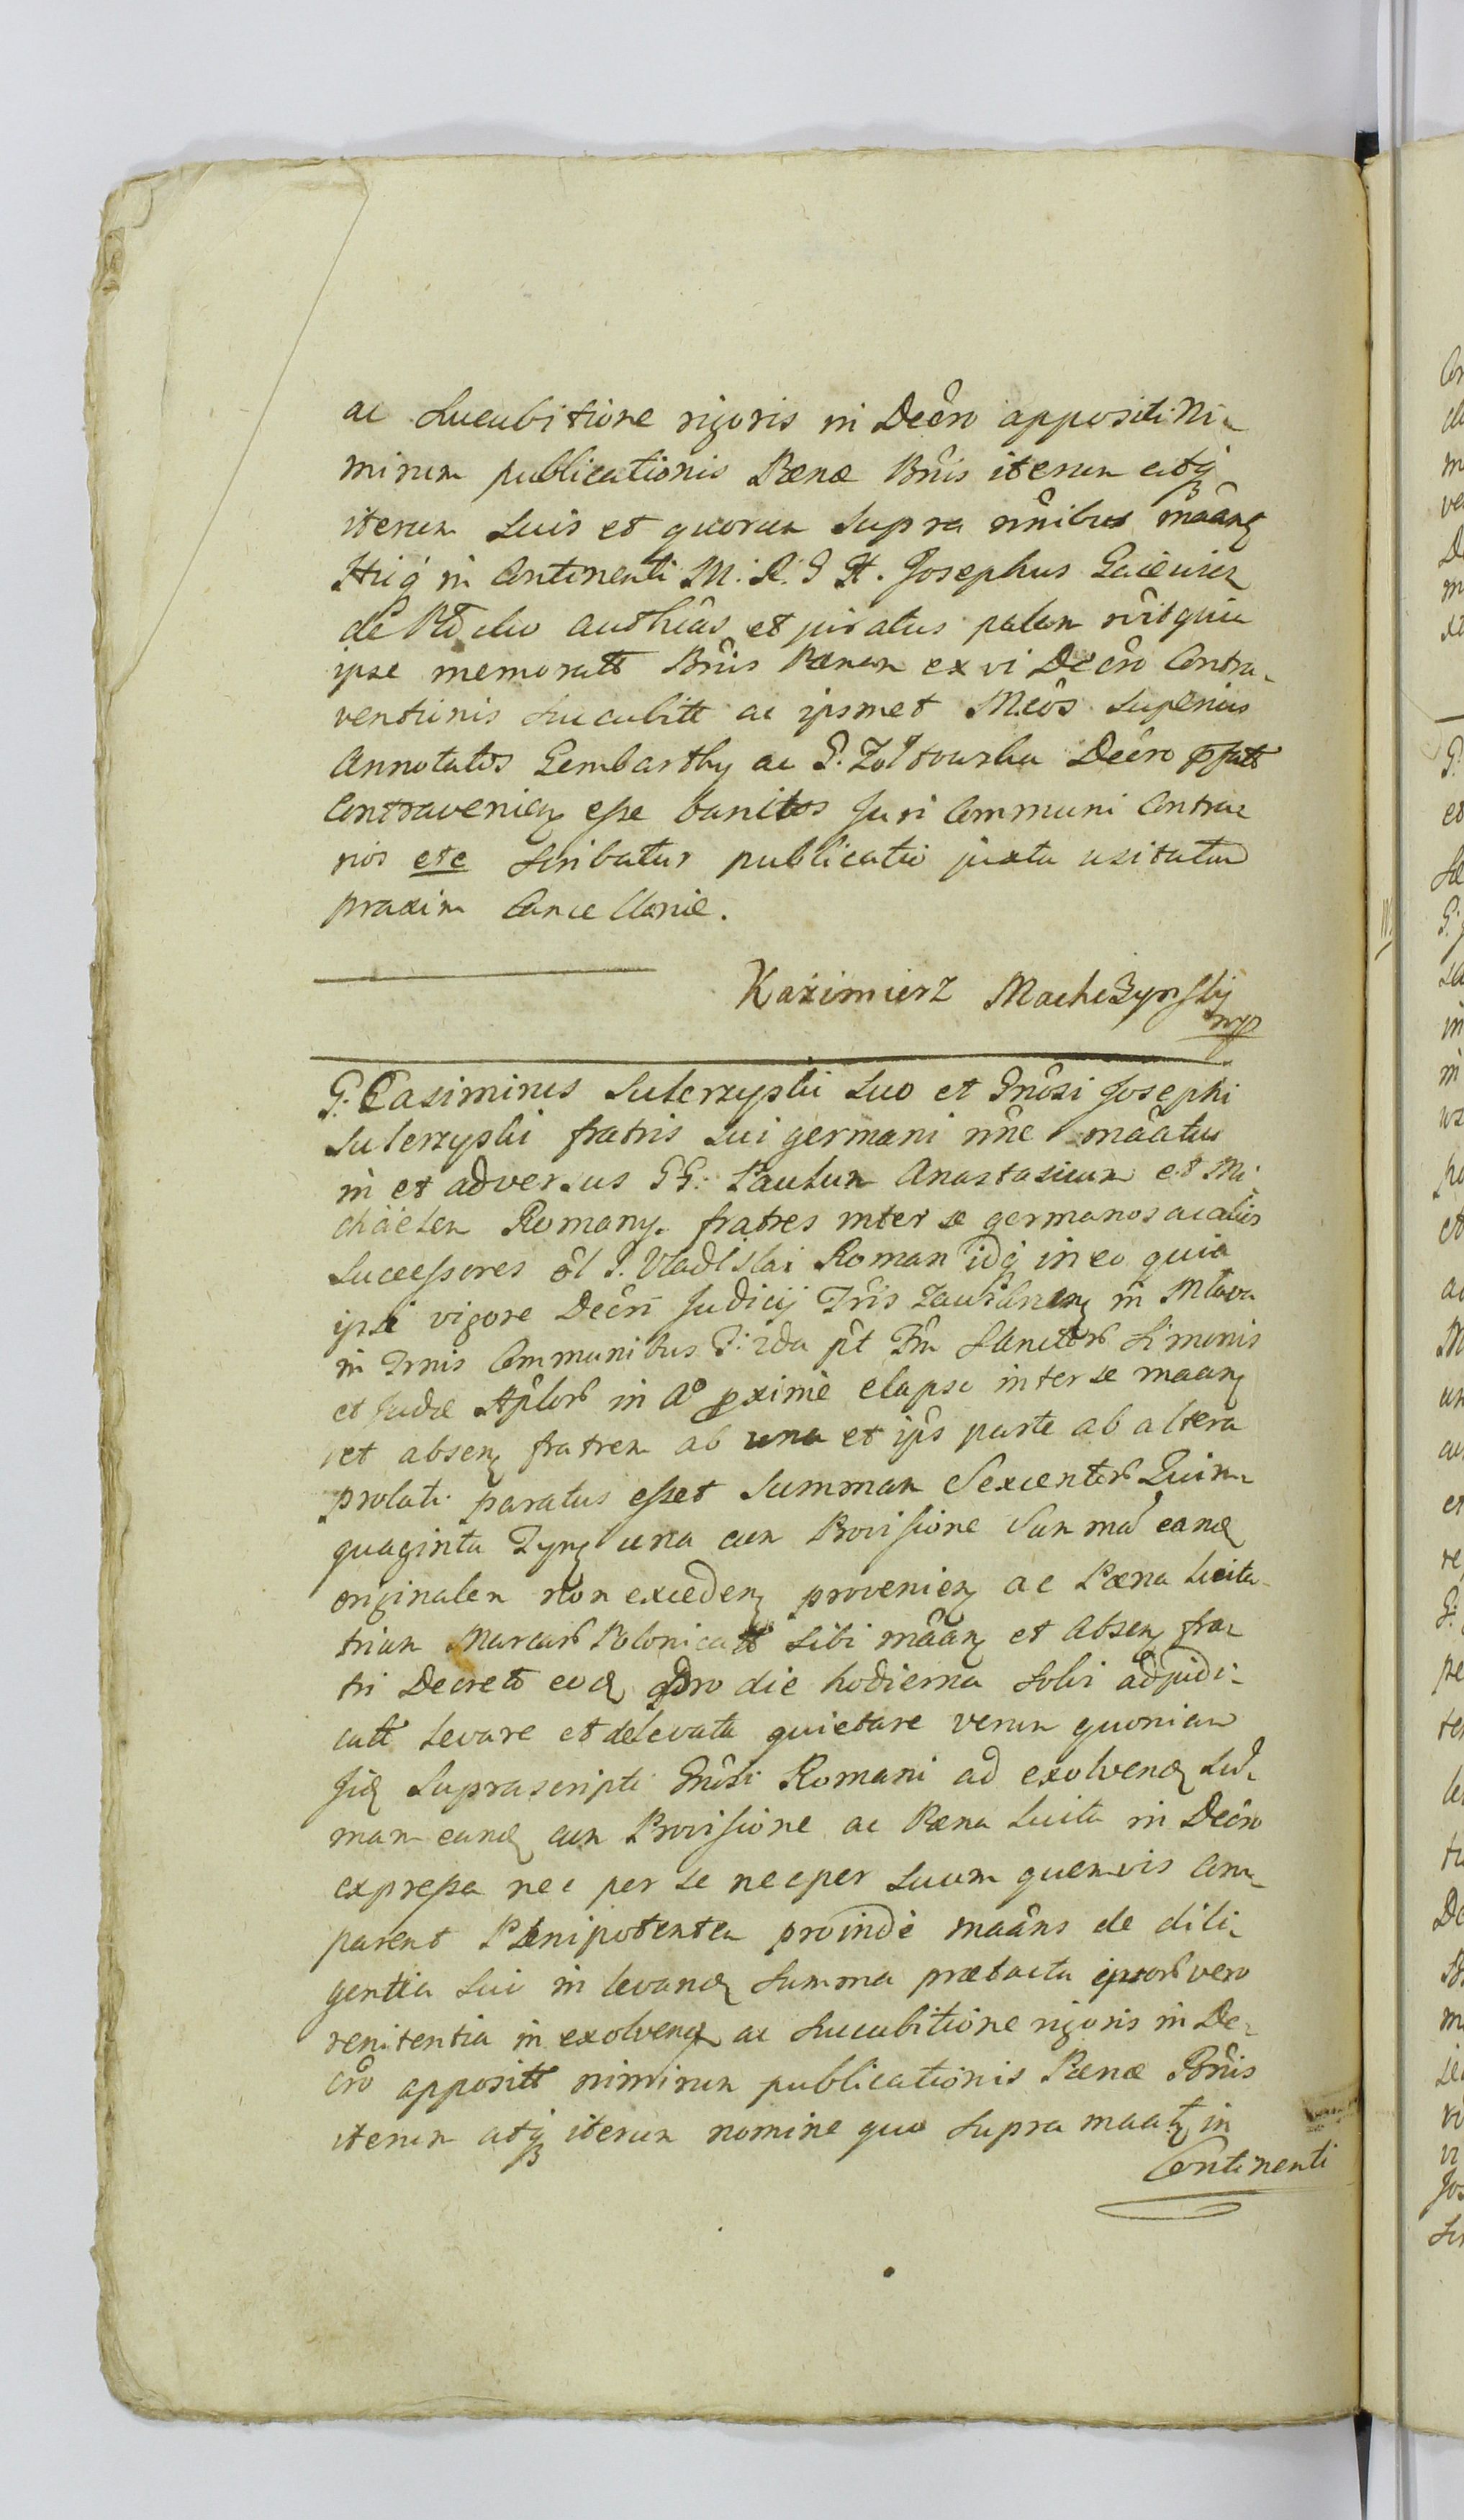 ac Sucubitione rigoris in Decro appositi Ni-
mirum publicationis Pœnæ Bnis iterum atq
iterum suis et quorum supra nnibus mââng
in Continenti M. R. J H. Josephus
de authêas et juratus palam quia
ipse memoratt Bnis Pœnam ex vi Decro Contra-
ventionis sucubitt ac ipsmet Mcôs Superius
Annotatos Gembarthy ac G. Decro
Contravenieng esse banitos Juri Communi Contra-
rios etc Scribatur publicatio juxta usitatam
praxim Cancellariæ.
Kazimierz Machczynskij
mp
G. Casimirus Sulerzyski suo et Gnôsi Josephi
Sulerzyski fratris sui germani nne mââtus
in et adversus GG: Paulum Anastasium et Mi-
chäelem Romany. fratres inter se germanos ac alios
Successores ôl G. Vladislai Roman idq in eo quia
ipsi vigore Decri Judicij Tris in Mlava
in Trnis Communibus F: 2da pt Fm Sanctorb Simonis
et Judæ Aplorb in Aº pximè elapso inter se maang
et abseng fratrem ab una et ips parte ab altera
prolati paratus esset Summam Sexcentorb Quin-
quaginta Tynf una cum Provisione Summam eand
originalem non excedeng provenieng ac Pœna Licita
trium Marcarb Polonicatt sibi mââng et Abseng fra-
tri Decreto eod pro die hodierna Solvi adjudi-
catt Levare et de Levata quietare verum quoniam
Jid Suprascripti Gnôsi Romani ad exolvend Sum-
mam eand cum Provisione ac Pœna Licita in Decro
expressa nec per se nec per Suum quemvis Com-
parent Plenipotentem proindè maâns de dili-
gentia sui in levand Summa prætacta ipsorb vero
renitentia in exolvend ac Sucubitione rigoris in De-
cro appositt nimirum publicationis Pœnæ Bnis
iterum atq iterum nomine quo supra maatg in
Continenti